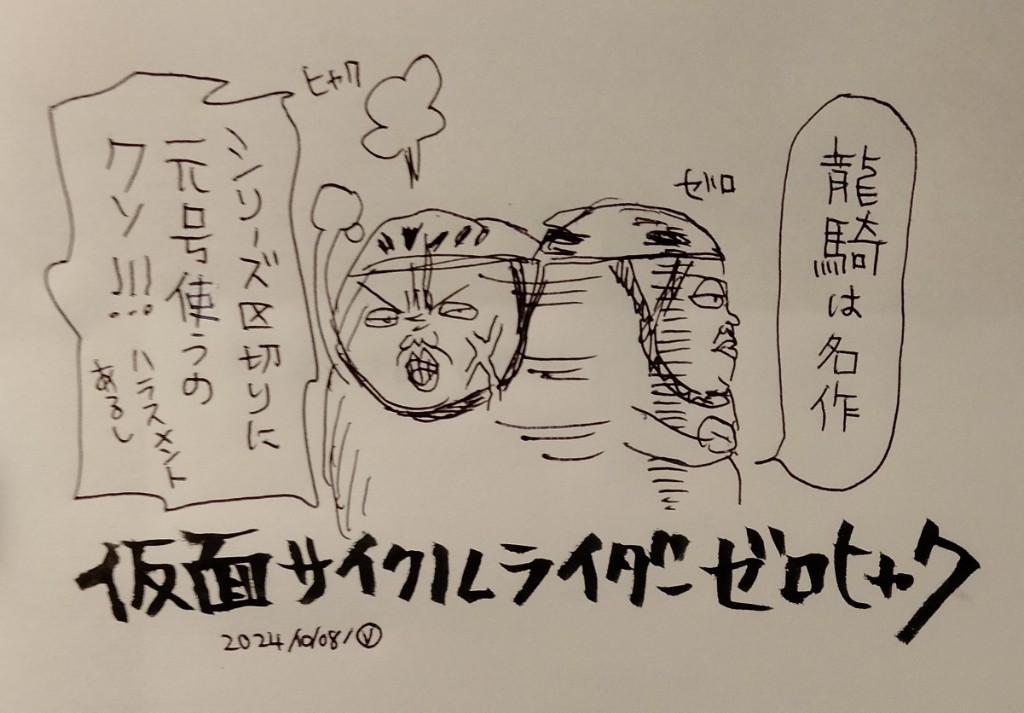 ゼロ
龍騎は名作
ヒャク
シリーズ区切りに
元号使うの
クソ!!!
ハラスメント
あるし
仮面サイクルライダーゼロヒャク
2024/10/08/Ⓥ